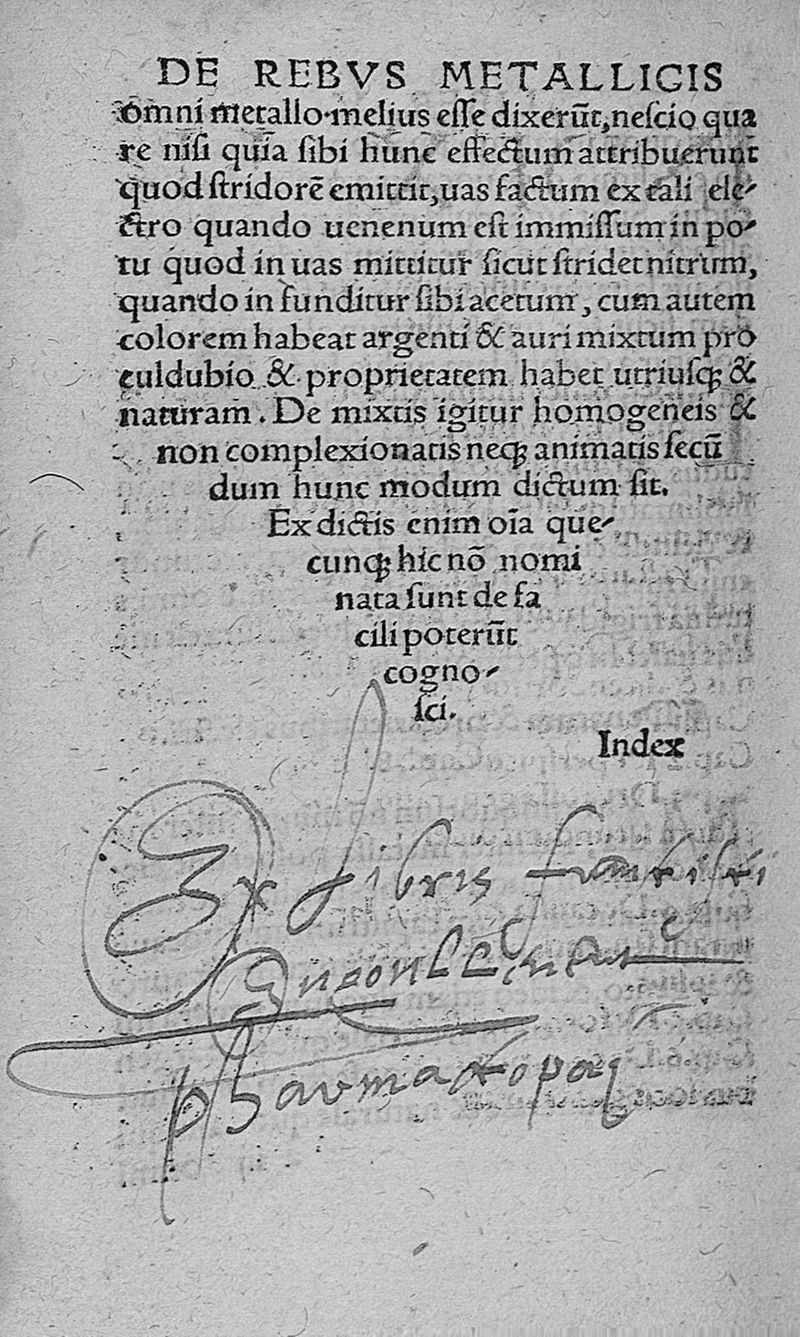 DE REBVS METALLICIS
omni metallo melius eſſe dixerūt, neſcio qua
re niſi quia ſibi hunc effectum attribuerunt
quod ſtridorē emittit, uas factum ex tali ele-
ctro quando uenenum eſt immiſſum in po-
tu quod in uas mittitur ſicut ſtridet nitrum,
quando in funditur ſibi acetum, cum autem
colorem habeat argenti & auri mixtum pro
culdubio & proprietatem habet utriuſq; &
naturam. De mixtis igitur homogeneis &
non complexionatis neq; animatis ſecū
dum hunc modum dictum ſit.
Ex dictis enim oīa que-
cunq; hic nō nomi
nata ſunt de fa
cili poterūt
cogno-
ſci.
Index
Ex libris